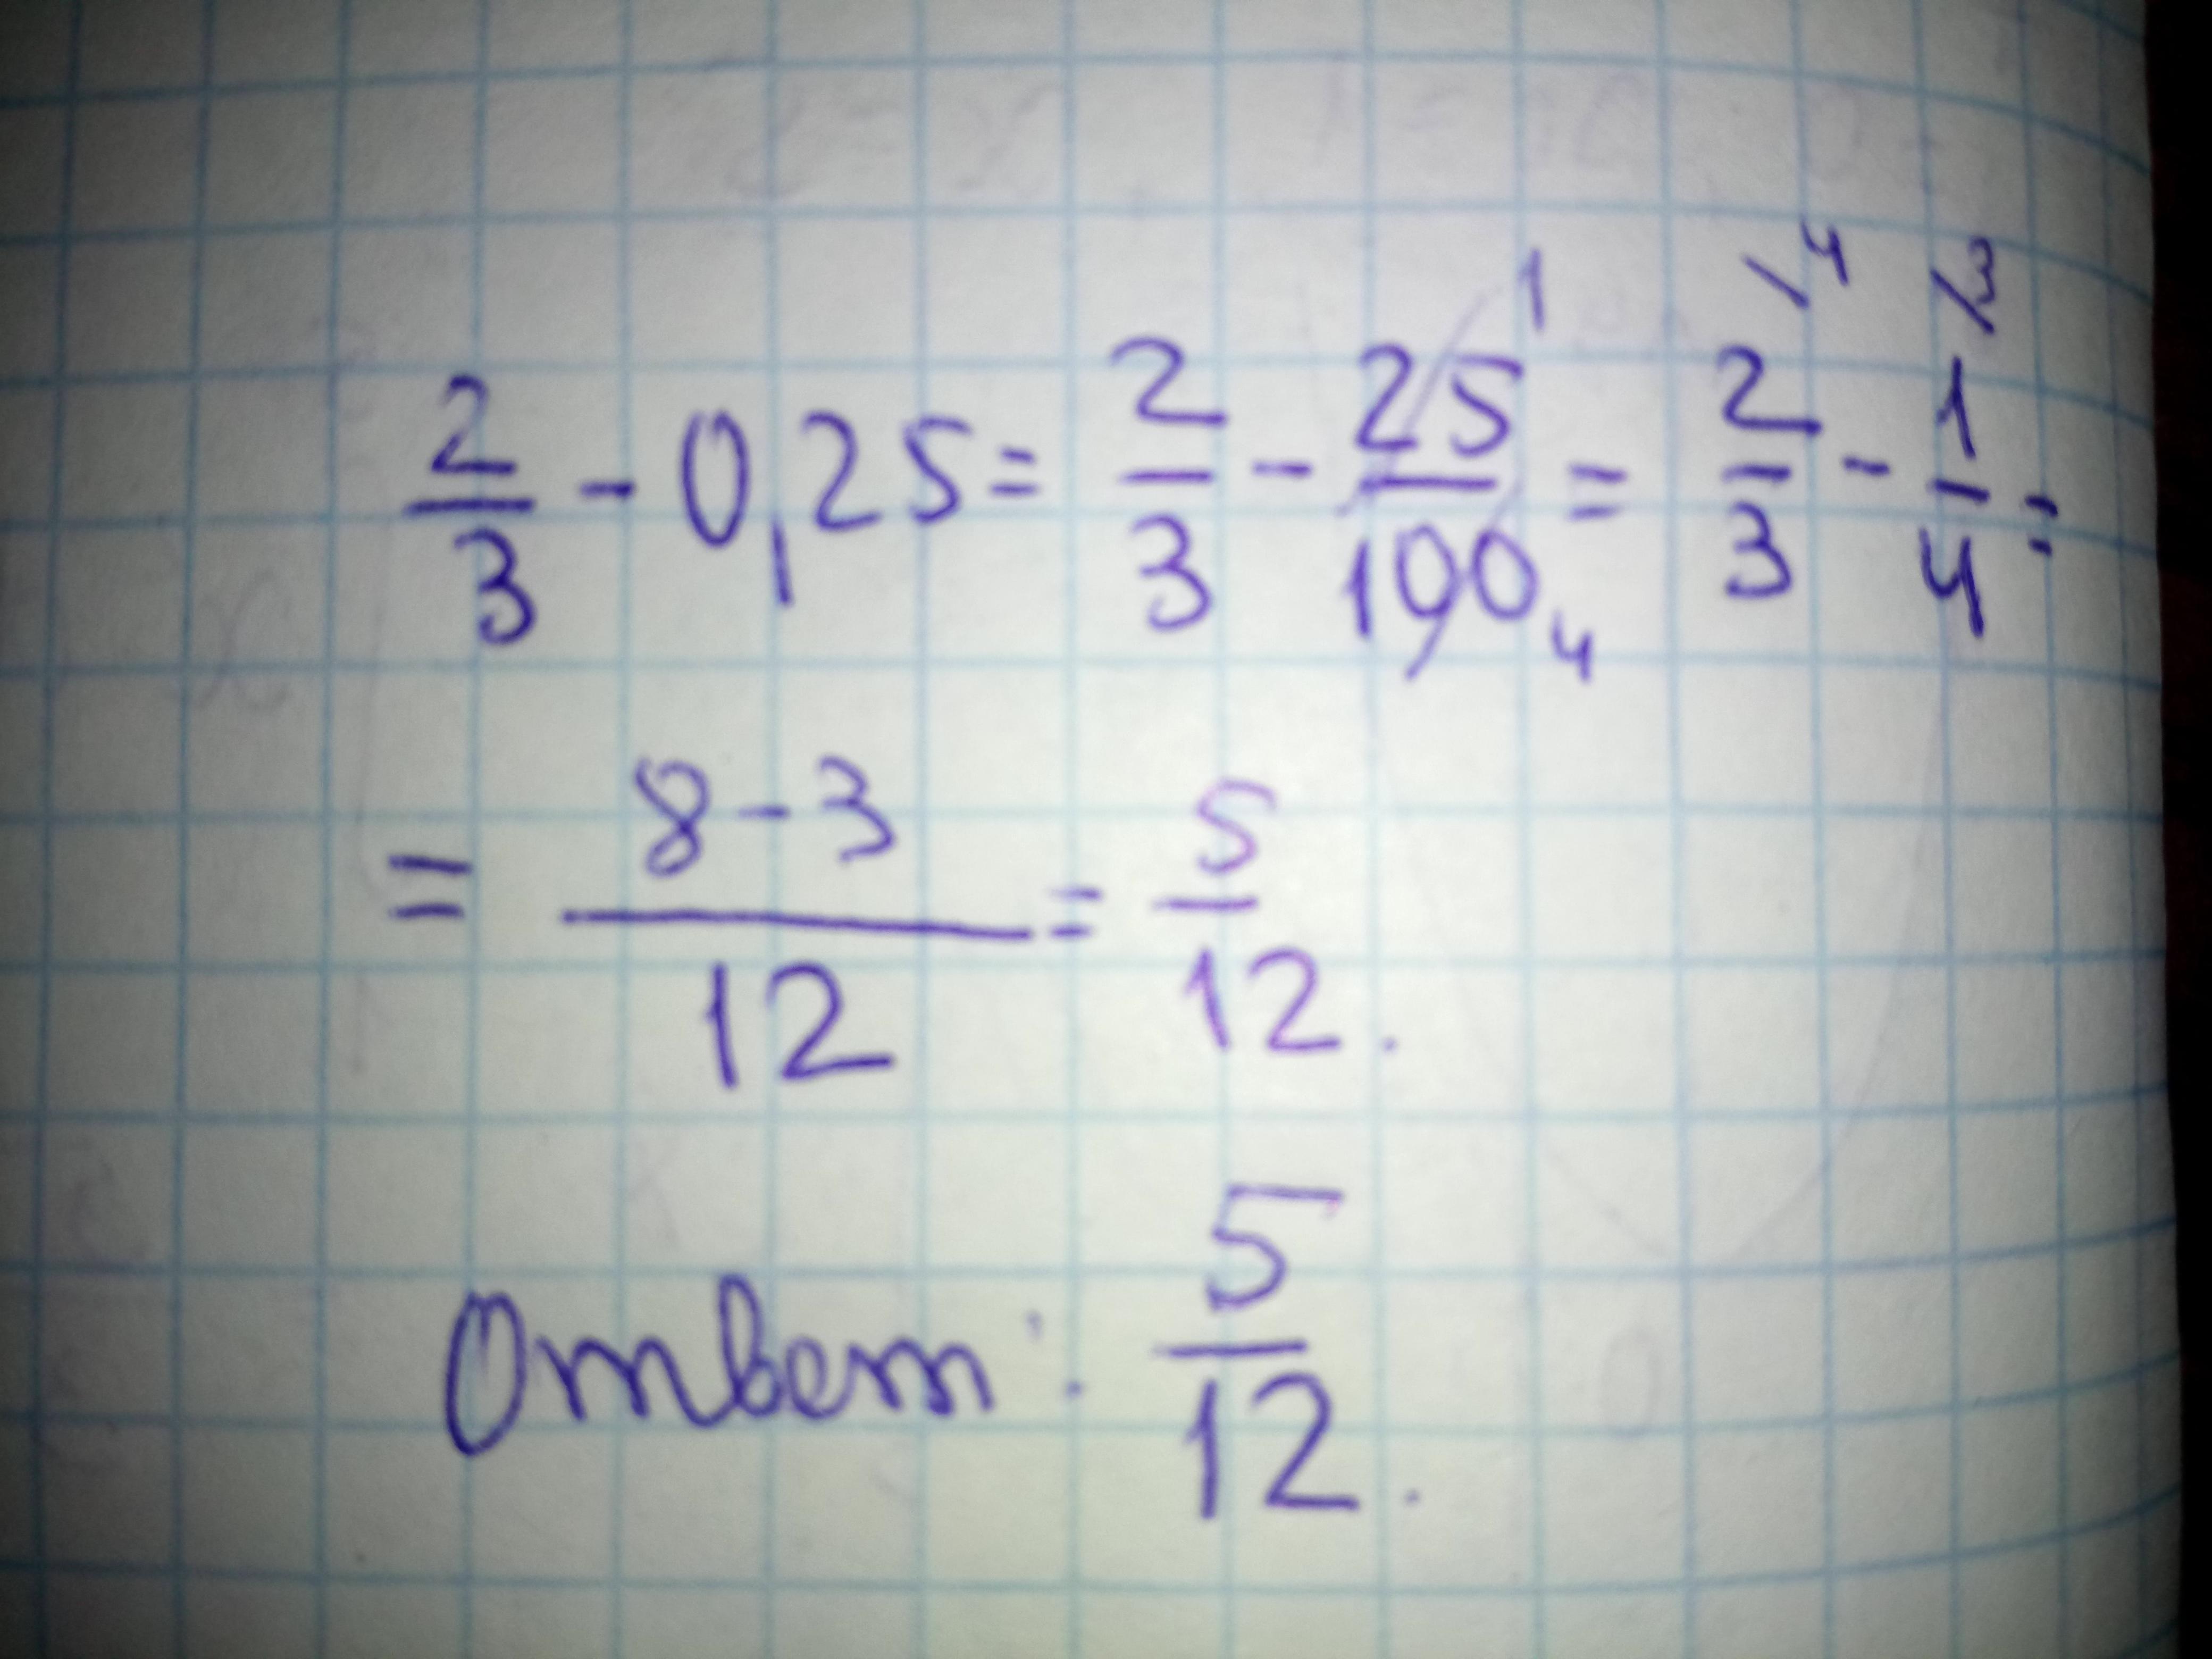 2/3 - 0,25 = 2/3 - 25 1/100 4 = 2/3 \4 - 1/4 \3 =
= 8-3/12 = 5/12.
Ответ: 5/12.